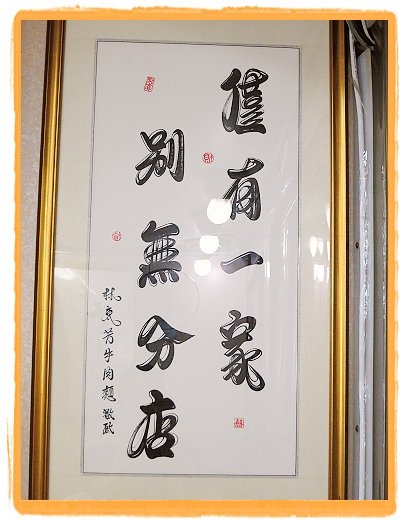 僅有一家
別無分店
林東芳牛肉麵 敬啟